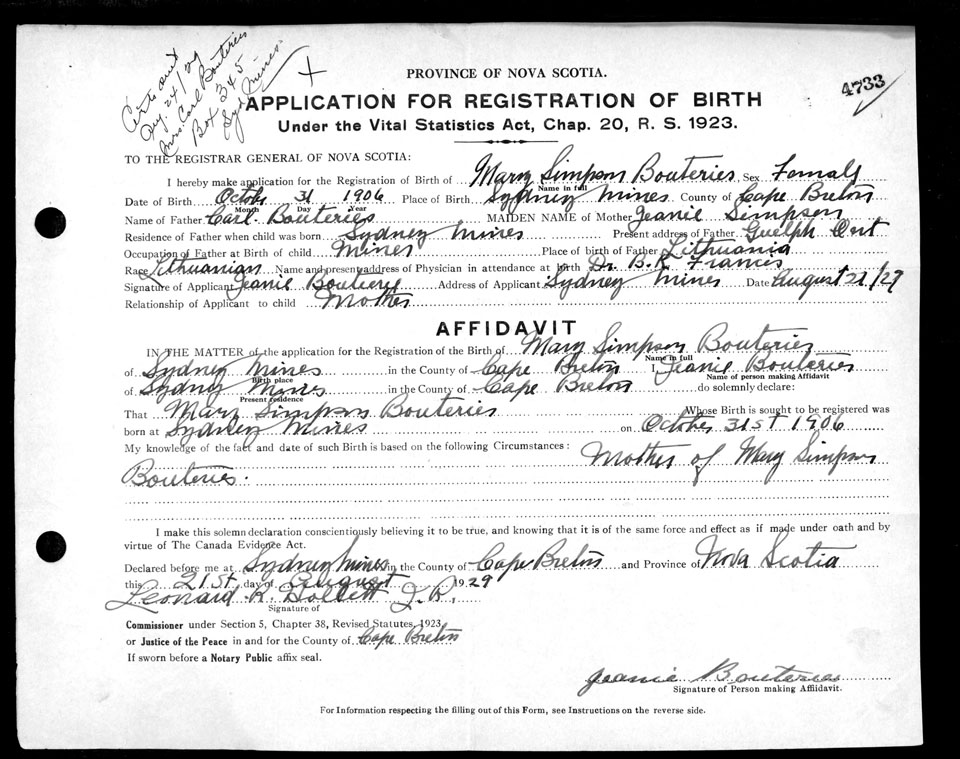 Certs out
Aug. 24/29
Mrs. Carl Bouteries
Box 345
Syd. Mines.
4733
PROVINCE OF NOVA SCOTIA.
APPLICATION FOR REGISTRATION OF BIRTH
Under the Vital Statistics Act, Chap. 20, R. S. 1923.
TO THE REGISTRAR GENERAL OF NOVA SCOTIA:
I hereby make application for the Registration of Birth of Mary Simpson Bouteries Sex Female
Name in full
Date of Birth October 31 1906 Place of Birth Sydney Mines County of Cape Breton
Month Day Year
Name of Father Carl Bouteries MAIDEN NAME of Mother Jeanie Simpson
Residence of Father when child was born Sydney Mines Present address of Father Guelph Ont
Occupation of Father at Birth of child Miner Place of birth of Father Lithuania
Race Lithuanian Name and present address of Physician in attendance at birth Dr. B.K. Francis
Signature of Applicant Jeanie Bouterie Address of Applicant Sydney Mines Date August 21/29
Relationship of Applicant to child Mother
AFFIDAVIT
IN THE MATTER of the application for the Registration of the Birth of Mary Simpson Bouteries
Name in full
of Sydney Mines in the County of Cape Breton I, Jeanie Bouteries
Birth place Name of person making Affidavit
of Sydney Mines in the County of Cape Breton do solemnly declare:
Present residence
That Mary Simpson Bouteries Whose Birth is sought to be registered was
born at Sydney Mines on October 31st 1906
My knowledge of the fact and date of such Birth is based on the following Circumstances: Mother of Mary Simpson
Bouteries.
I make this solemn declaration conscientiously believing it to be true, and knowing that it is of the same force and effect as if made under oath and by
virtue of The Canada Evidence Act.
Declared before me at Sydney Mines in the County of Cape Breton and Province of Nova Scotia
this 21st day of August 1929
Leonard R. Hollett J.P.
Signature of
Commissioner under Section 5, Chapter 38, Revised Statutes, 1923
or Justice of the Peace in and for the County of Cape Breton
If sworn before a Notary Public affix seal.
Jeanie Bouteries
Signature of Person making Affidavit.
For Information respecting the filling out of this Form, see Instructions on the reverse side.